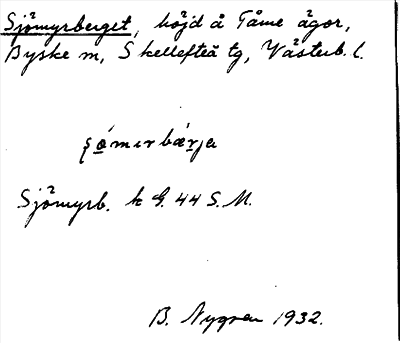 Sjömyrberget, höjd å Tåme ägor,
Byske sn, Skellefteå tg, Västerb. l.
ʂǿmɪrbærja
Sjömyrb. k G. 44 S. M.
B. Nygren 1932.